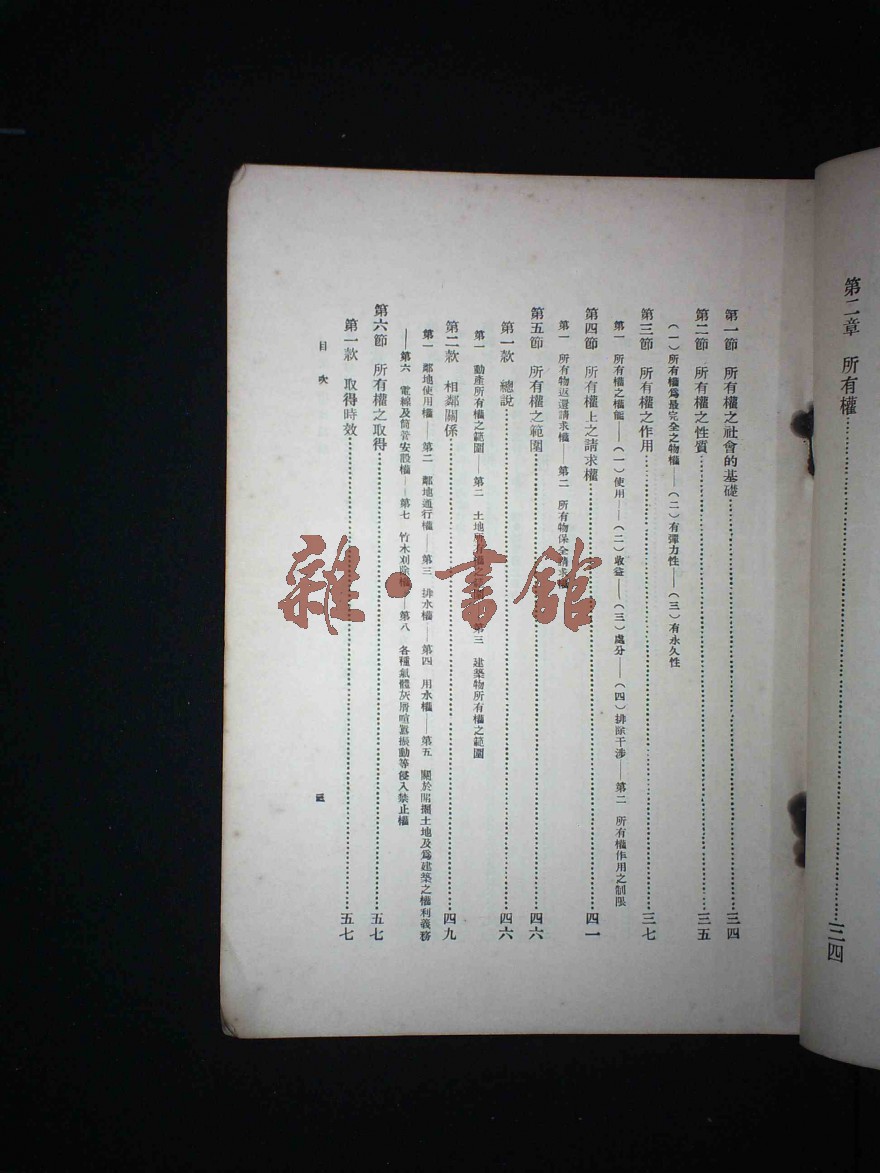 第二章 所有權……三四
第一節 所有權之社會的基礎……三四
第二節 所有權之性質……三五
(一)所有權爲最完全之物權——(二)有彈力性——(三)有永久性
第三節 所有權之作用……三七
第一 所有權之權能——(一)使用——(二)收益——(三)處分——(四)排除干涉——第二 所有權作用之制限
第四節 所有權上之請求權……四一
第一 所有物返還請求權——第二 所有物保全請求權
第五節 所有權之範圍……四六
第一款 總說……四六
第一 動產所有權之範圍——第二 土地所有權之範圍——第三 建築物所有權之範圍
第二款 相鄰關係……四九
第一 鄰地使用權——第二 鄰地通行權——第三 排水權——第四 用水權——第五 關於開掘土地及爲建築之權利義務
——第六 電線及筒管安設權——第七 竹木刈除權——第八 各種氣體灰屑喧囂振動等侵入禁止權
第六節 所有權之取得……五七
第一款 取得時效……五七
目次
三
雜·書館